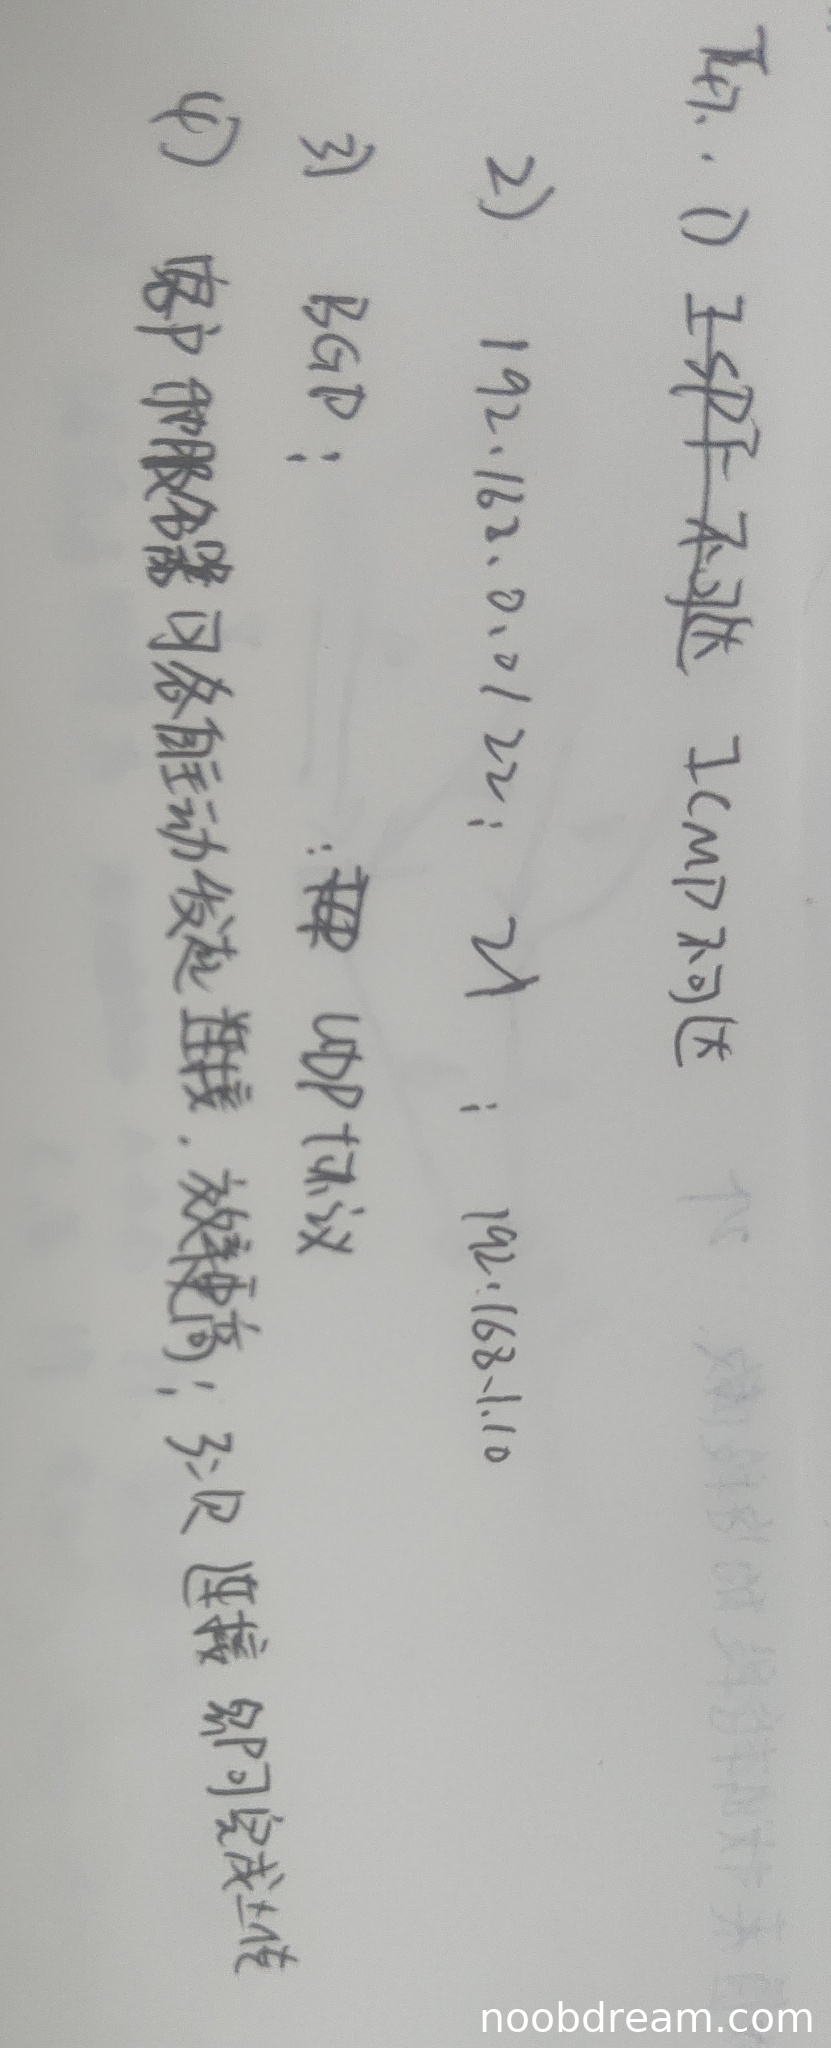 T47. 1) ICMP不可达
2) 192.162.0.0/22; 21; 192.168.1.10
3) BGP; ; UDP协议
(4) 客户和服务器可各自主动发起连接.效率更高;三次连接即可完成上传
noobdream.com